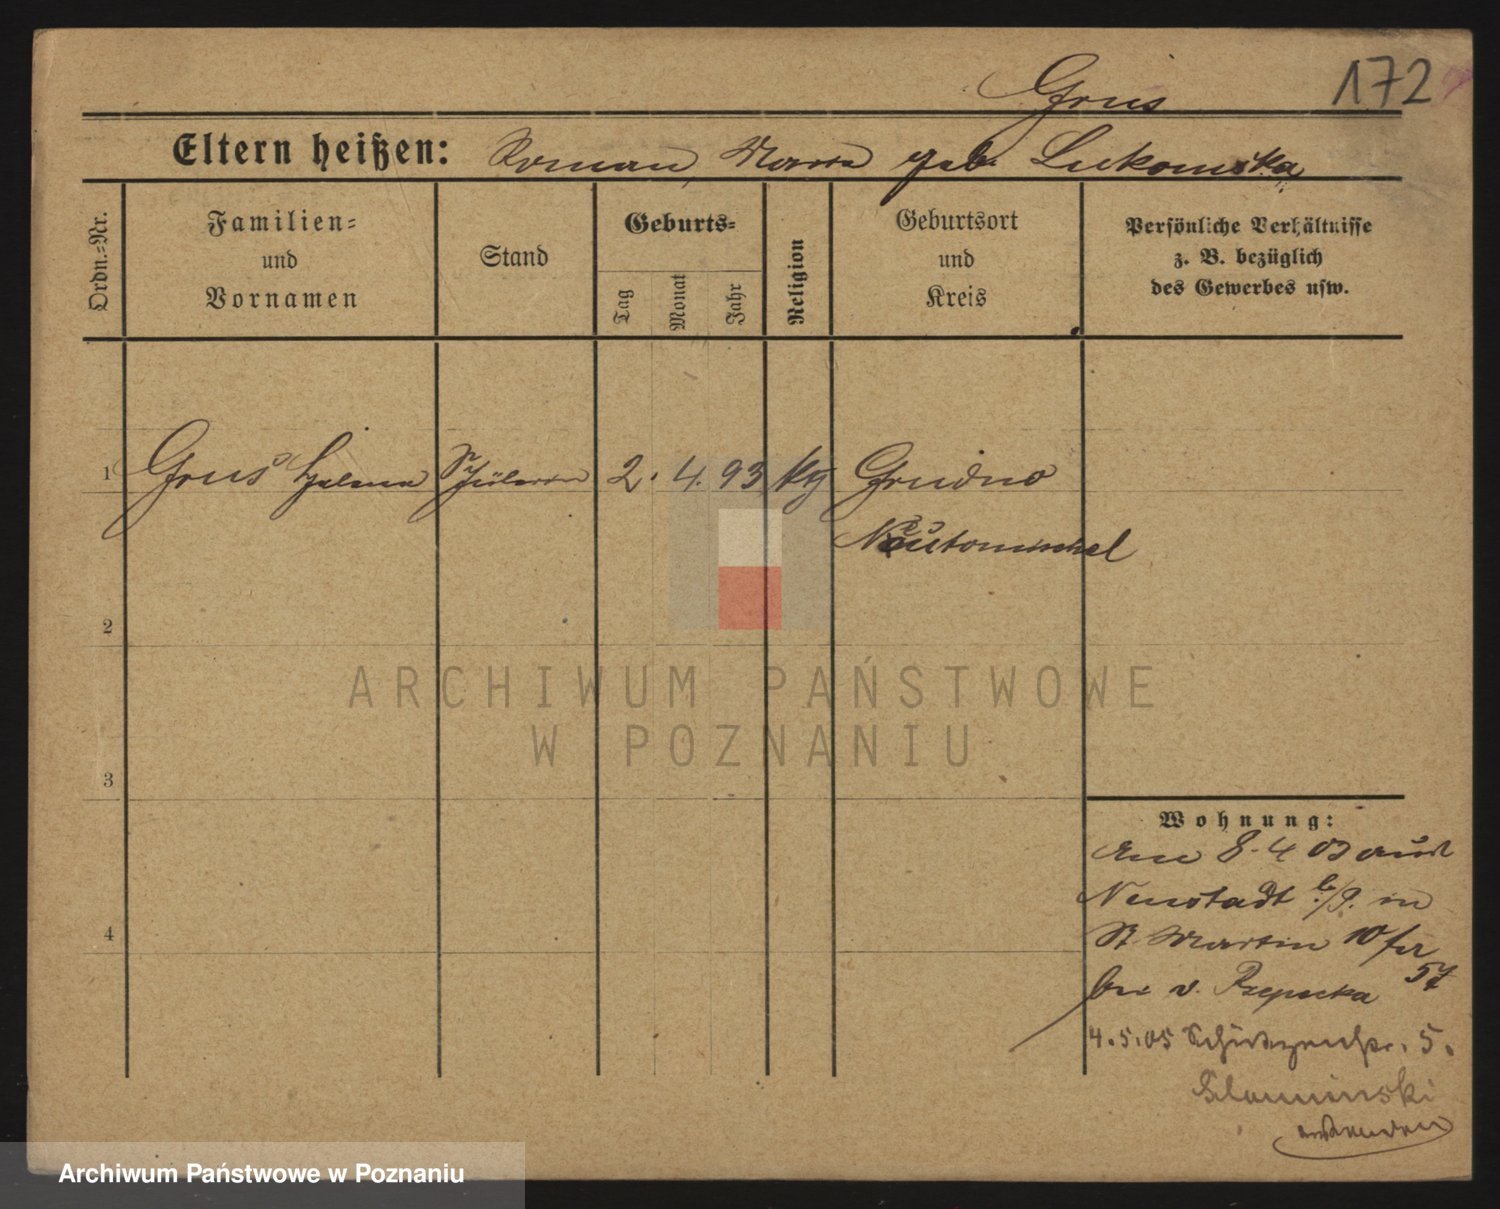 Grus 172
Eltern heißen: Roman, Maria geb. Lukomska
Ordn.=Nr.
Familien=
und
Vornamen
Stand
Geburts=
Tag
Monat
Jahr
Religion
Geburtsort
und
Kreis
Persönliche Verhältnisse
z. B. bezüglich
des Gewerbes usw.
1 Grus Helena Schülerin 2. 4. 93 kth Grudno
Neutomischel
2
3
4
Wohnung:
Am 8.4 03 aus
Neustadt b/P. in
St Martin 10
bei v. Rzepecka 57
4.5.05 Schützenstr. 5.
Slominski
ARCHIWUM PAŃSTWOWE
W POZNANIU
Archiwum Państwowe w Poznaniu